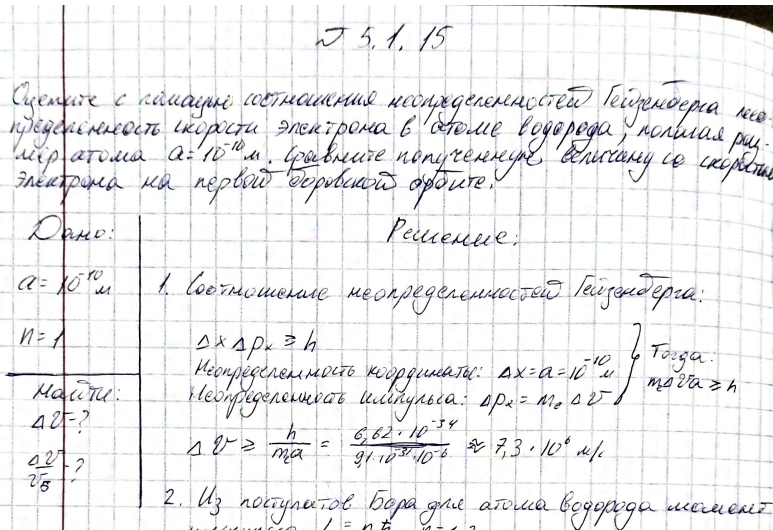 № 5.1.15
Оцените с помощью соотношения неопределенностей Гейзенберга нео-
пределенность скорости электрона в атоме водорода, полагая раз-
мер атома a = 10⁻¹⁰ м. Сравните полученную величину со скоростью
электрона на первой боровской орбите.
Дано:
a = 10⁻¹⁰ м
n = 1
Найти:
Δv - ?
Δv/v_Б - ?
Решение:
1. Соотношение неопределенностей Гейзенберга:
Δx Δpₓ ≥ h
Неопределенность координаты: Δx = a = 10⁻¹⁰ м
Неопределенность импульса: Δpₓ = mₑ Δv
} Тогда:
mₑΔva ≥ h
Δv ≥ h/mₑa = 6,62·10⁻³⁴/9,1·10⁻³¹·10⁻⁶ ≈ 7,3·10⁶ м/с
2. Из постулатов Бора для атома водорода момент